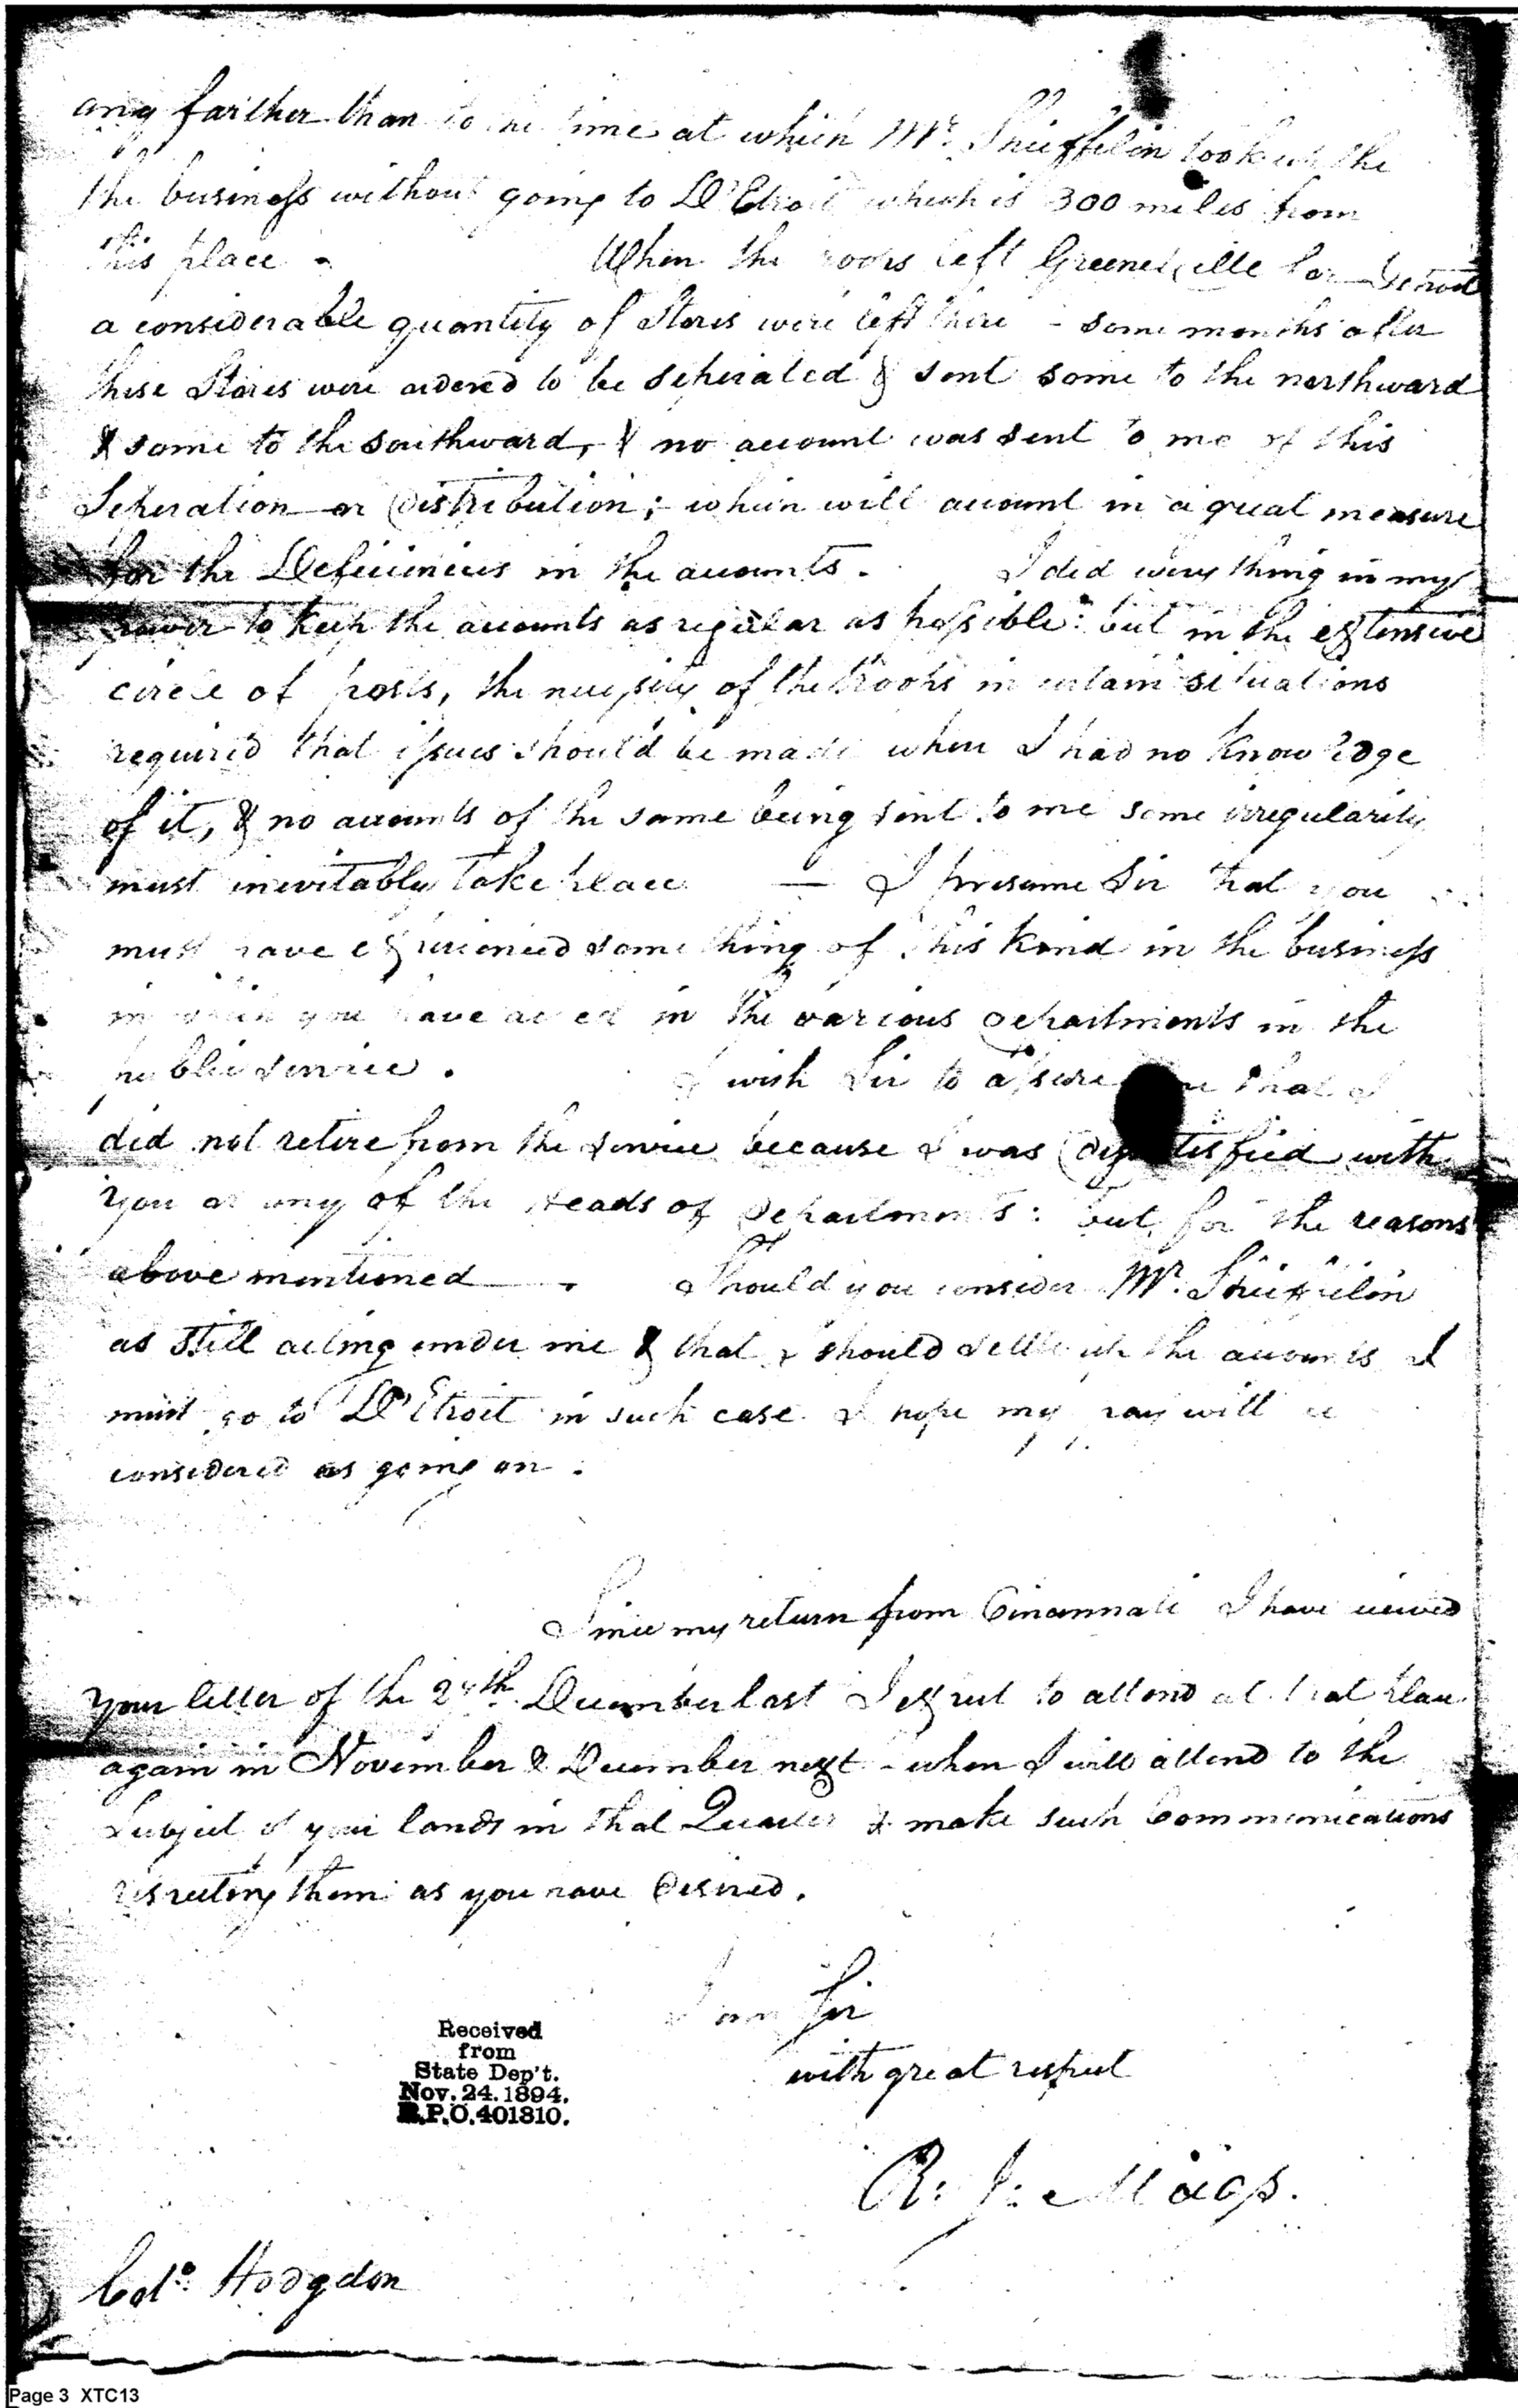 any farther than to the time at which Mr. Shieffelin took up the
the business without going to D'Etroit which is 300 miles from
this place -
When the troops left Greeneville for Detroit
a considerable quantity of Stores were left there - some months after
these Stores were ordered to be seperated & sent some to the northward
& some to the southward, & no account was sent to me of this
Seperation or distribution; which will account in a great measure
for the Deficiencies in the accounts.
I did every thing in my
power to keep the accounts as regular as possible: but in the extensive
circle of posts, the necessity of the troops in certain situations
required that issues should be made when I had no knowledge
of it, & no accounts of the same being sent to me some irregularity
must inevitably take place
— I presume Sir that you
must have experienced some thing of this kind in the business
in which you have acted in the various departments in the
public service.
I wish Sir to assure you that I
did not retire from the service because I was dissatisfied with
you or any of the Heads of departments: but for the reasons
above mentioned -
Should you consider Mr. Shieffelin
as still acting under me & that I should settle up the accounts I
must go to D'Etroit in such case I hope my pay will be
considered as going on.
Since my return from Cinannati I have received
your letter of the December last I expect to attend at that place
again in November & December next - when I will attend to the
Subject of your lands in that Quarter & make such Communications
respecting them as you have desired.
I am Sir
with great respect
R. J. Meigs.
Received
from
State Dep't.
Nov. 24. 1894.
R.P.O. 401310.
Colo. Hodgdon
Page 3 XTC13